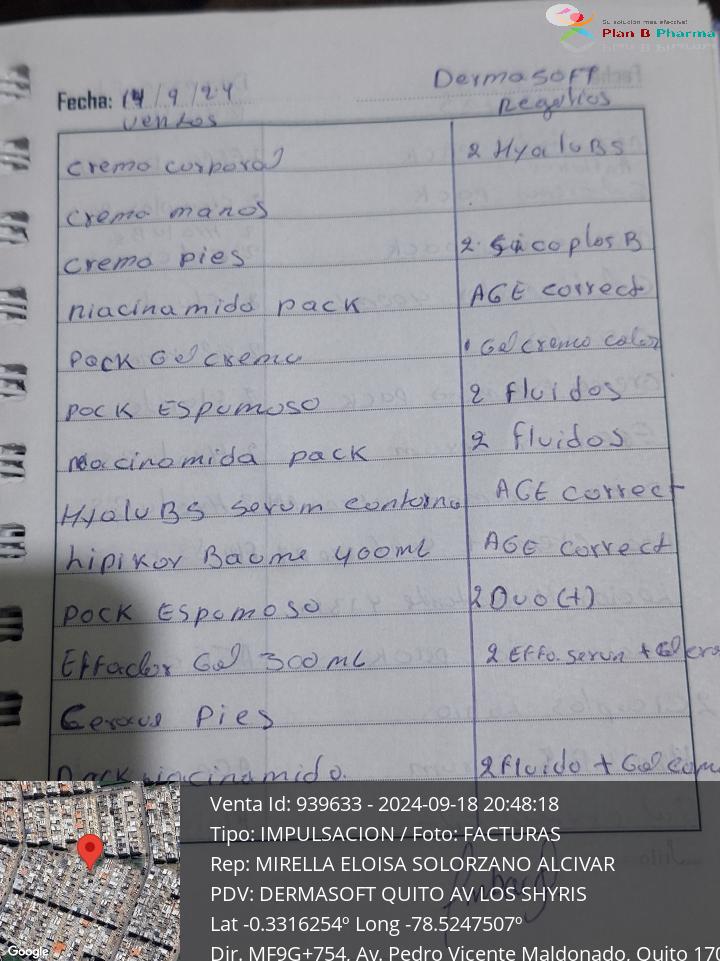 Su solucion mas efectiva!
Plan B Pharma
Dermasoft
Fecha: 14/9/24 Regalios
ventas
crema corporal 2 HyaluBS
crema manos
crema pies 2 cicaplas B
niacinamida pack AGE correct
Pack Gel crema 1 Gel crema color
pack Espumoso 2 fluidos
niacinamida pack 2 fluidos
HyaluBS serum contorno AGE correct
lipikar Baume 400ml AGE correct
pack Espomoso 2 Duo(+)
Effaclar Gel 300 mL 2 Effa. serun +
Cerave Pies
Pack niacinamida. 2 fluido + Gel
Venta Id: 939633 - 2024-09-18 20:48:18
Tipo: IMPULSACION / Foto: FACTURAS
Rep: MIRELLA ELOISA SOLORZANO ALCIVAR
PDV: DERMASOFT QUITO AV.LOS SHYRIS
Lat -0.3316254º Long -78.5247507º
Dir. MF9G+754, Av. Pedro Vicente Maldonado, Quito 170
Google